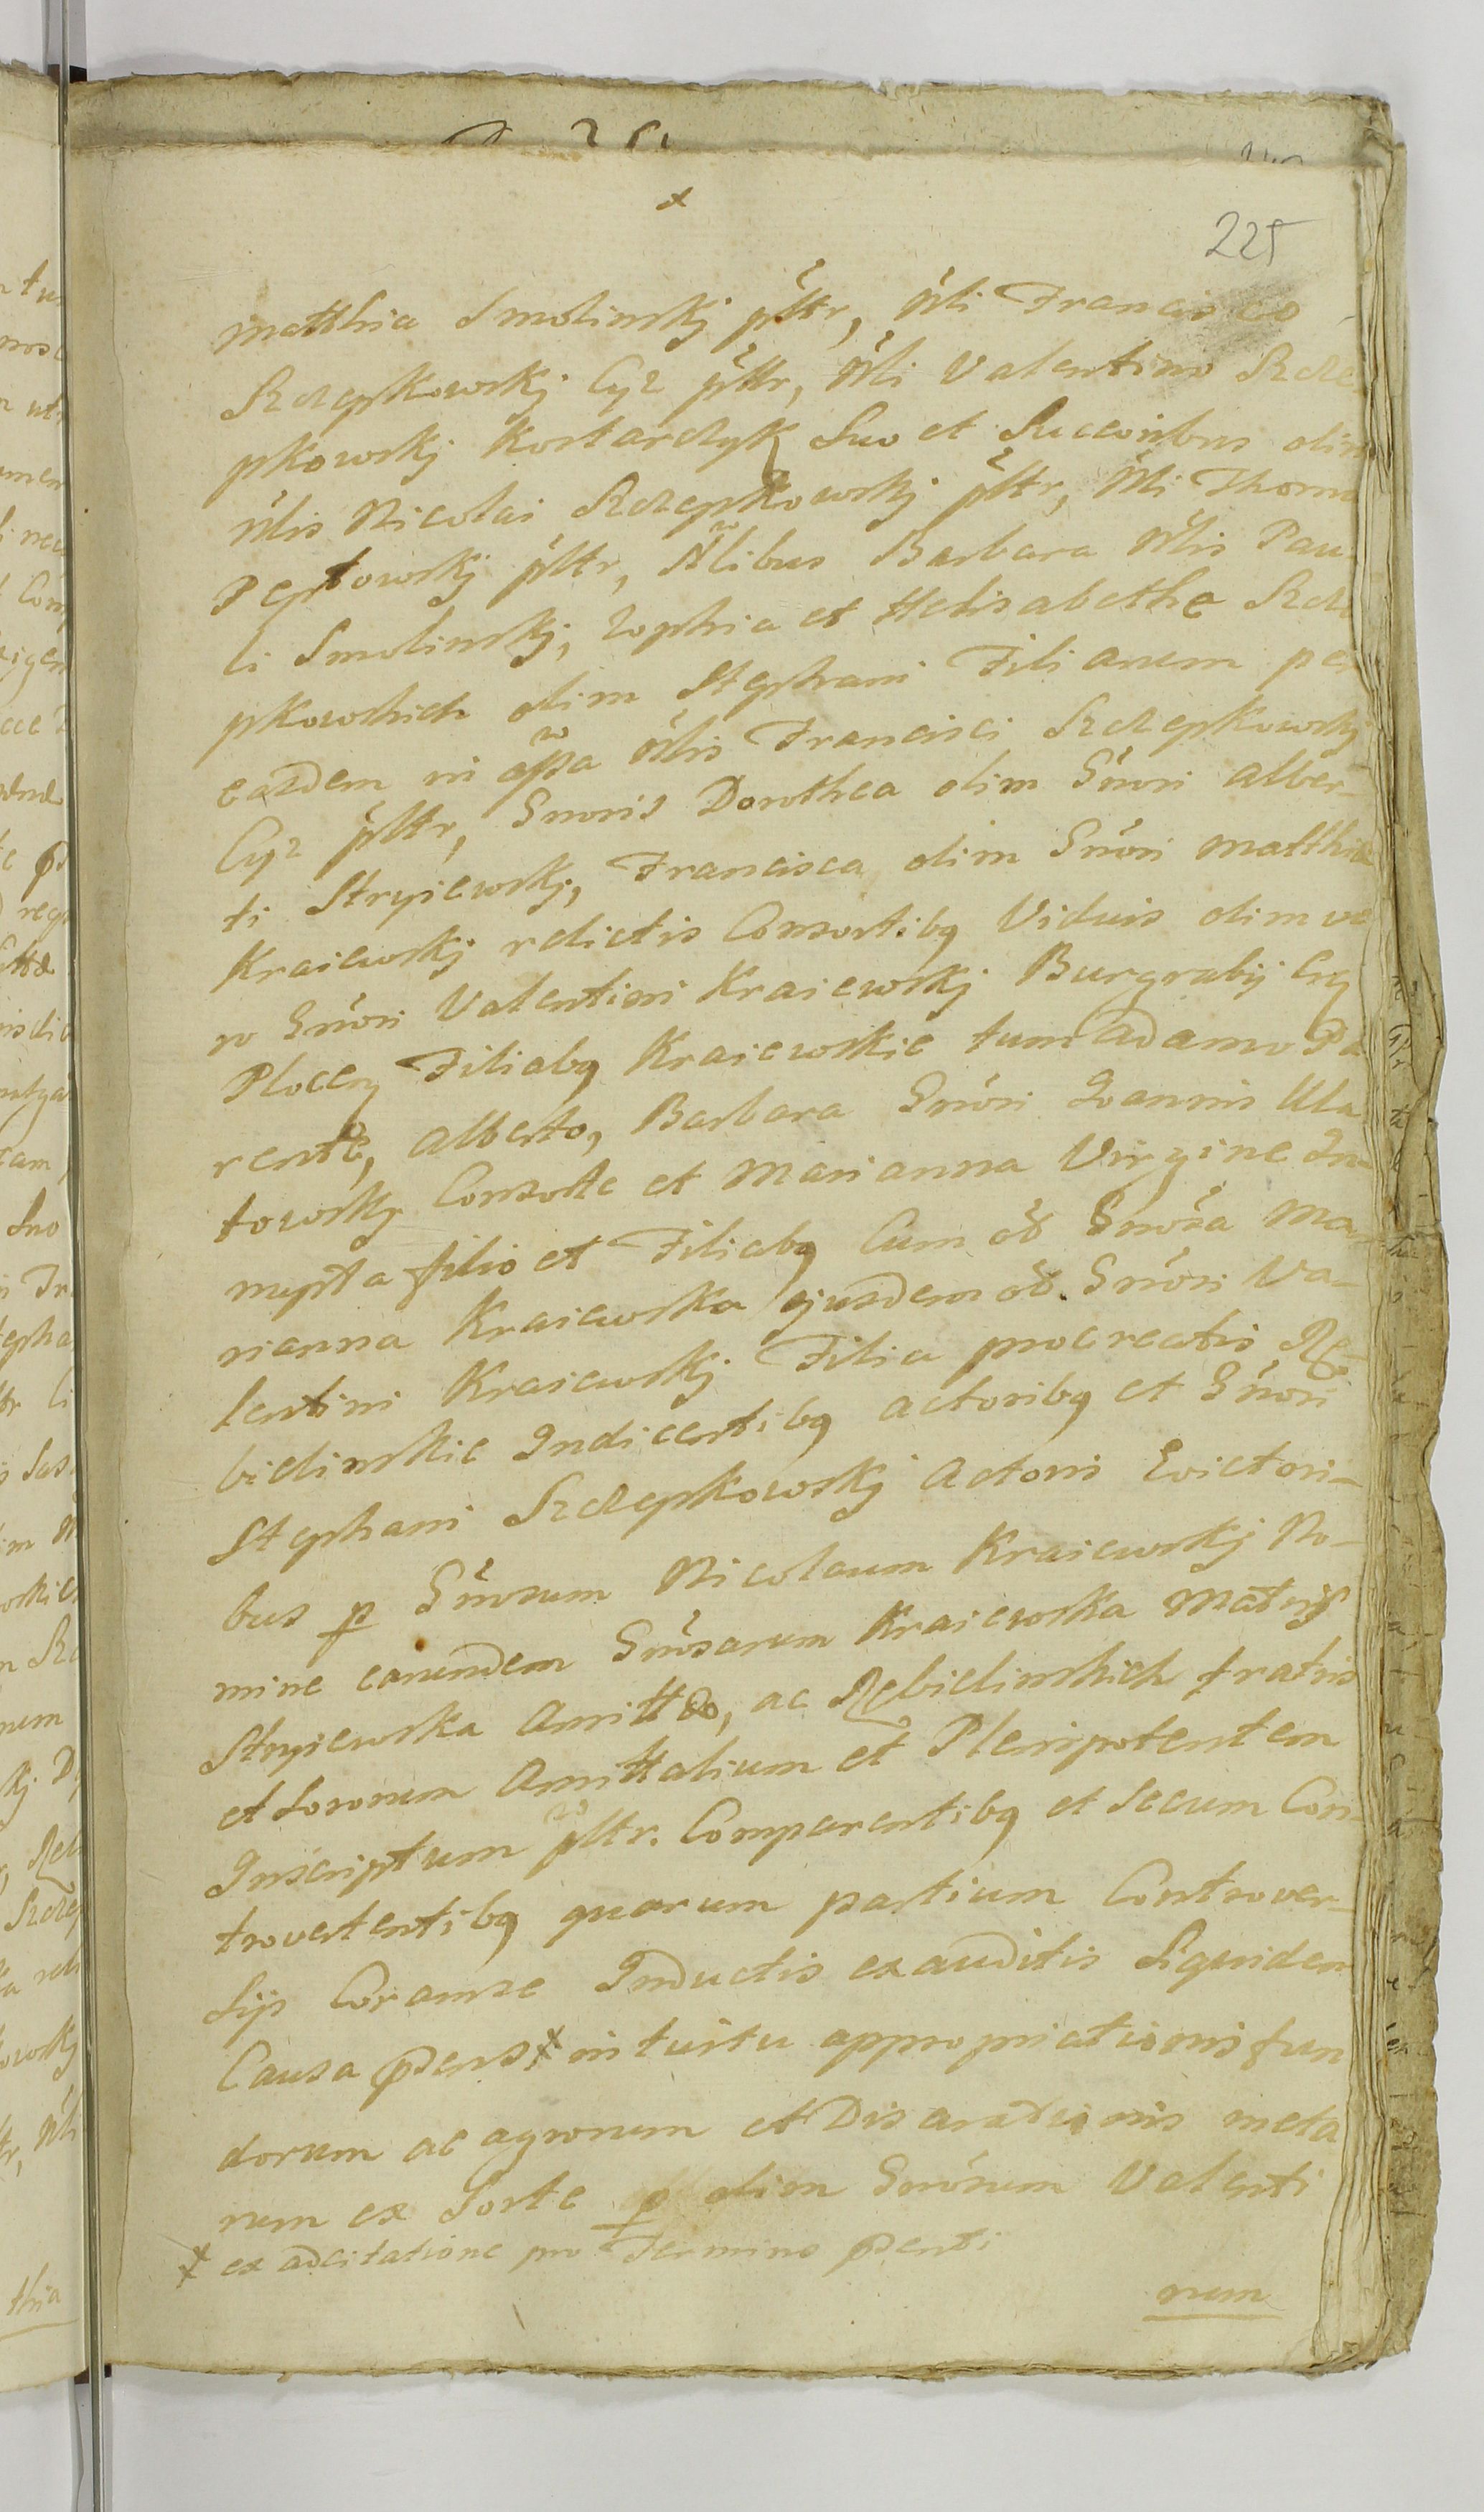 x
225
Matthia Smolinskj pltr, Nli Francisco
Szczepkowskj Cyz pltr, Nli Valentino Szcze
pkowskj Kostarczyk Suo et Succoribus olim
Nlis Nicolai Szczepkowskj pltr, Nli Thoma
Peptowskj pltr, Nlibus Barbara Nlis Pau
li Smolinskj, Zophia et Helisabethe Szcze
pkowskich olim Stephani Filiarum per
easdem in assa Nlis Francisci Szczepkowskj
Cyz pltr, Gnoris Dorothea olim Gnori Alber-
ti Stryiewskj, Francisca olim Gnori Matthia
Kraiewskj relictis Consortibq Viduis olim ve
ro Gnori Valentini Kraiewskj Burgrabij
Plocen Filiabq Kraiewskie tum Adamo Pa
rente, Alberto, Barbara Gnori Joannis Ula
towskj Consorte et Marianna Virgine In-
nupta filio et Filiabq Cum od Gnosa Ma
rianna Kraiewska ejusdem od. Gnori Va-
lentini Kraiewskj Filia procreatis Re
bielinskie Indicentibq Actoribq et Gnori
Stephani Szczepkowskj Actori Evictori-
bus p Gnosum Nicolaum Kraiewskj No-
mine earumdem Gnosarum Kraiewska Matris
Stryiewska Amittæ, ac Rebielinskich fratris
et Sororum Amittalium et Plenipotentem
Inscriptum pltr. Comparentibq et Secum Con-
trovertentibq quarum partium Controver-
sijs Coramse Inductis exauditis Siquidem
Causa pdens x intuitu appropriationis fun
dorum ac agrorum et Disarationis meta
rum ex Sorte p olim Gnosum Valenti
x ex adcitatione pro Termino pdenti
num